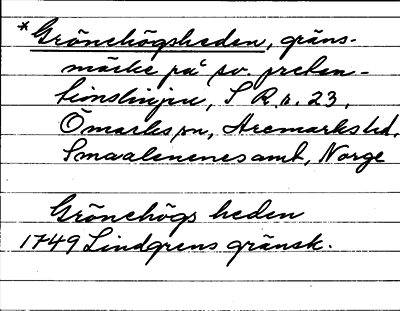 *Grönehögsheden, gräns-
märke på sv. preten-
tionslinjen, S R.a. 23,
Ömarks sn, Aremarks hd,
Smaalenenes amt, Norge
Grönehögs heden
1749 Lindgrens gränsk.